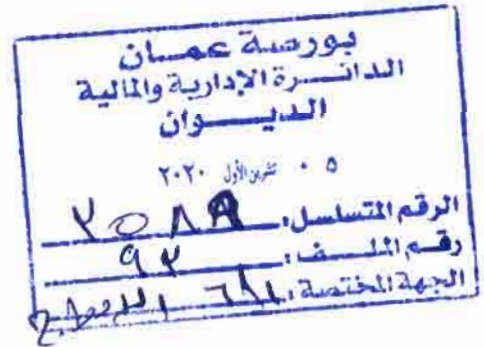 بورصة عمان
الدائرة الإدارية والمالية
الديوان
٠٥ تشرين الأول ٢٠٢٠
الرقم المتسلسل:
رقم الملف: ٩٢
الجهة المختصة: